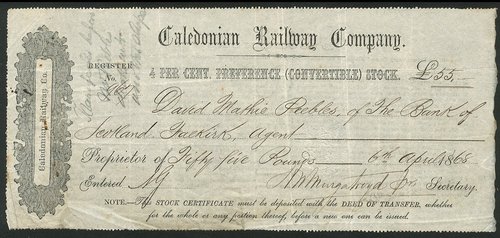 Caledonian Railway Company.
REGISTER
No
4 PER CENT. PREFERENCE (CONVERTIBLE) STOCK. £55.
David Mathie Peebles, of The Bank of
Scotland, Falkirk, Agent
Proprietor of Fifty five Pounds 6th April 1868
Entered Secretary.
NOTE.—The STOCK CERTIFICATE must be deposited with the DEED OF TRANSFER, whether
for the whole or any portion thereof, before a new one can be issued.
Caledonian Railway Co.